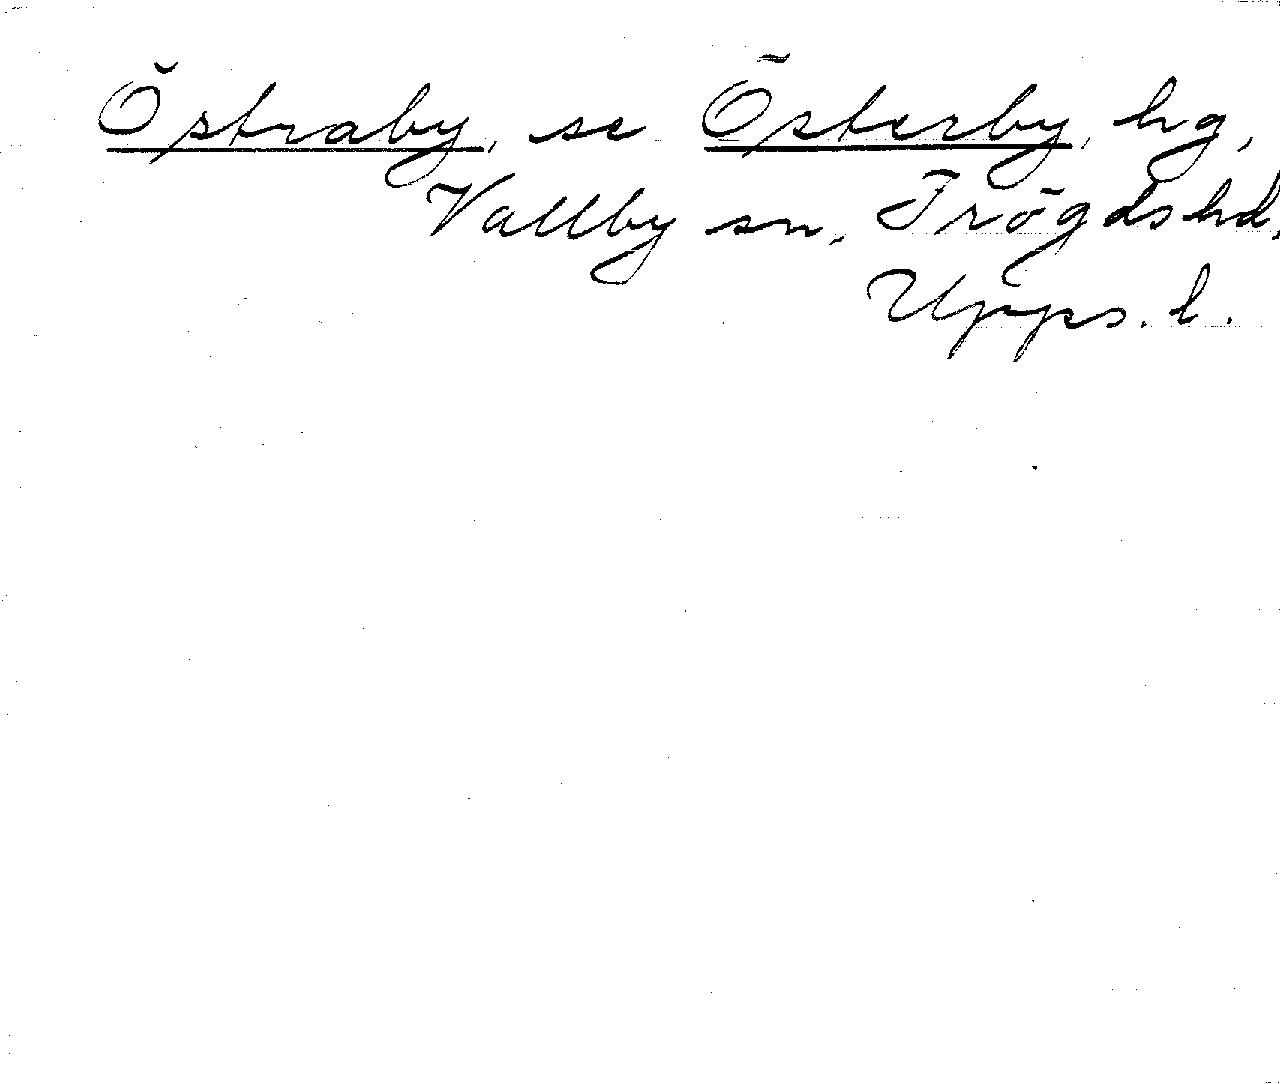 Östraby, se Österby, hg,
Vallby sn, Trögds hd,
Upps. l.